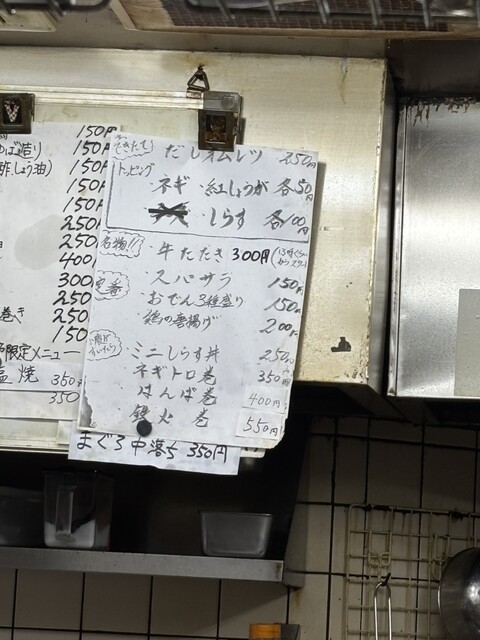 150円
ゆば造り) 150円
酢しょう油) 150円
150円
150円
250
250
400
300
250
巻き 250
150
限定メニュー
塩焼 350円
350
できたて! だしオムレツ 250円
トッピング
・ネギ・紅しょうが 各50円
・しらす 各100円
名物!! ・牛たたき 300円
定番 ・スパサラ 150円
・おでん3種盛り 150円
・鶏の唐揚げ 200円
ミニしらす丼 250円
ネギトロ巻 350円
はんぱ巻 400円
鉄火巻 550円
まぐろ中落ち 350円